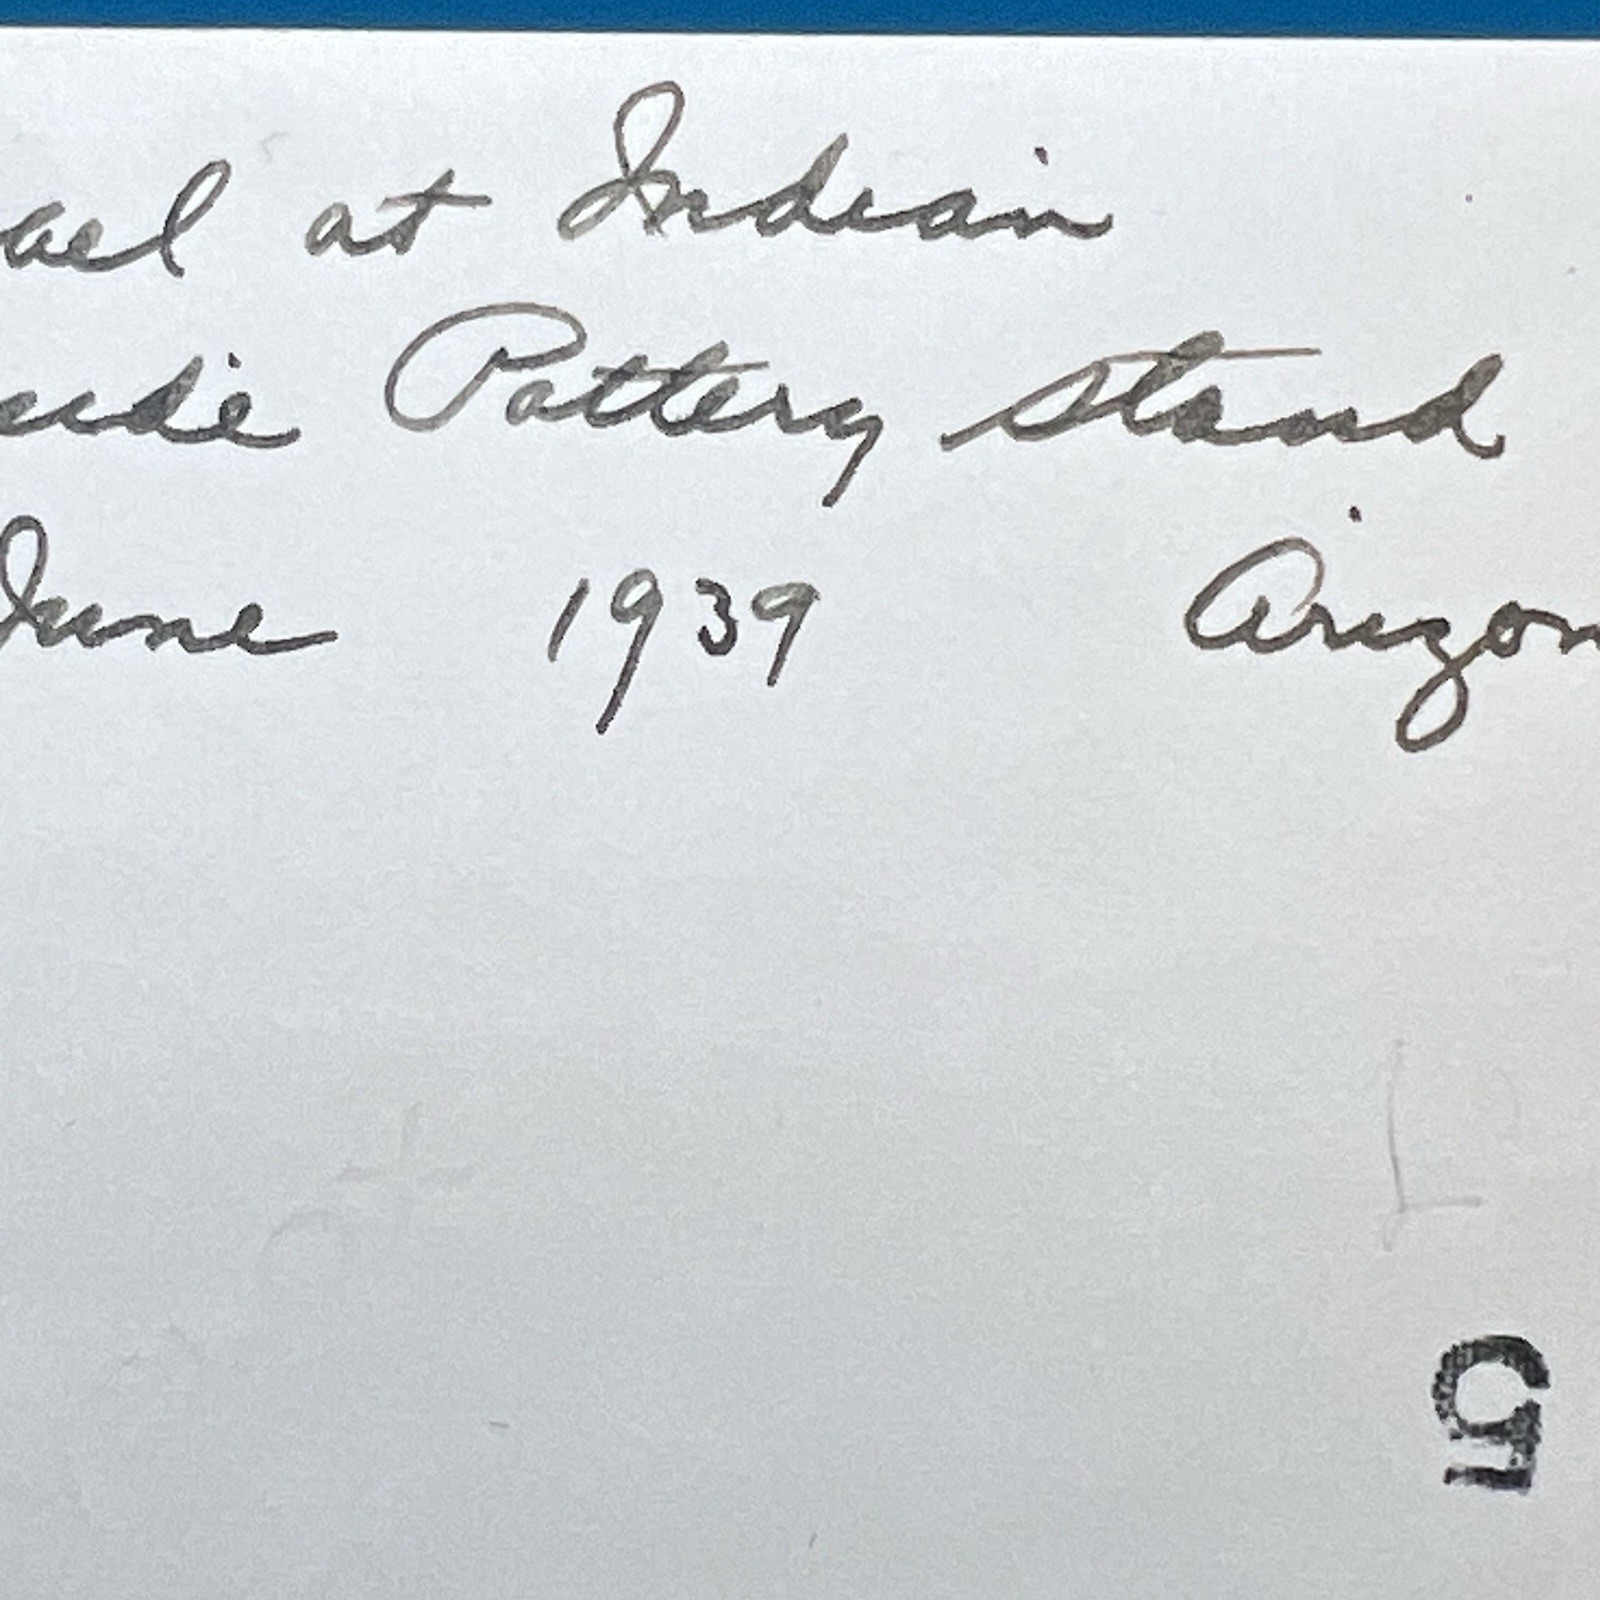 ael at Indian
side Pottery stand
June 1939 Arizon
5